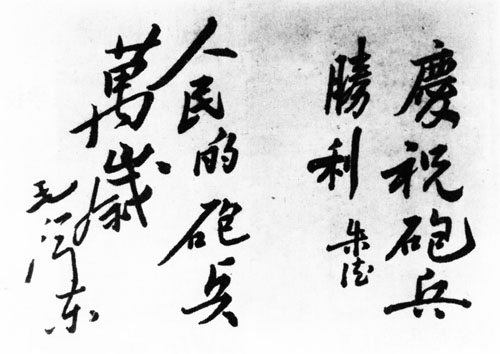 慶祝砲兵
勝利
朱德
人民的砲兵
萬歲
毛澤东